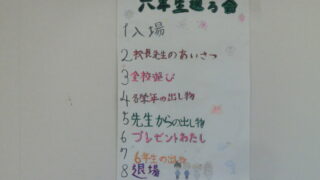 六年生送る会
1 入場
2 校長先生のあいさつ
3 全校遊び
4 各学年の出し物
5 先生からの出し物
6 プレゼントわたし
7 6年生の出し物
8 退場